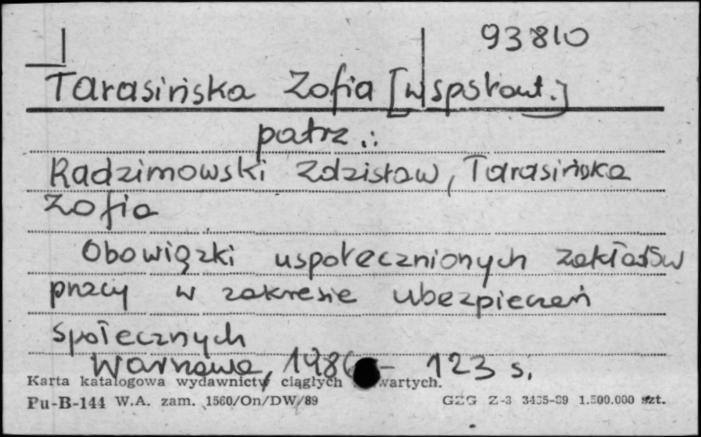 93810
Tarasińska Zofia [współaut.]
patrz.:
Radzimowski Zdzisław, Tarasińska
Zofia
Obowiązki uspołecznionych zakładów
pracy w zakresie ubezpieczeń
społecznych
Warszawa, 1986 - 123 s.
Karta katalogowa wydawnictw ciągłych wartych.
Pu-B-144 W.A. zam. 1560/On/DW/89 GZG Z-3 3435-89 1.500.000 szt.